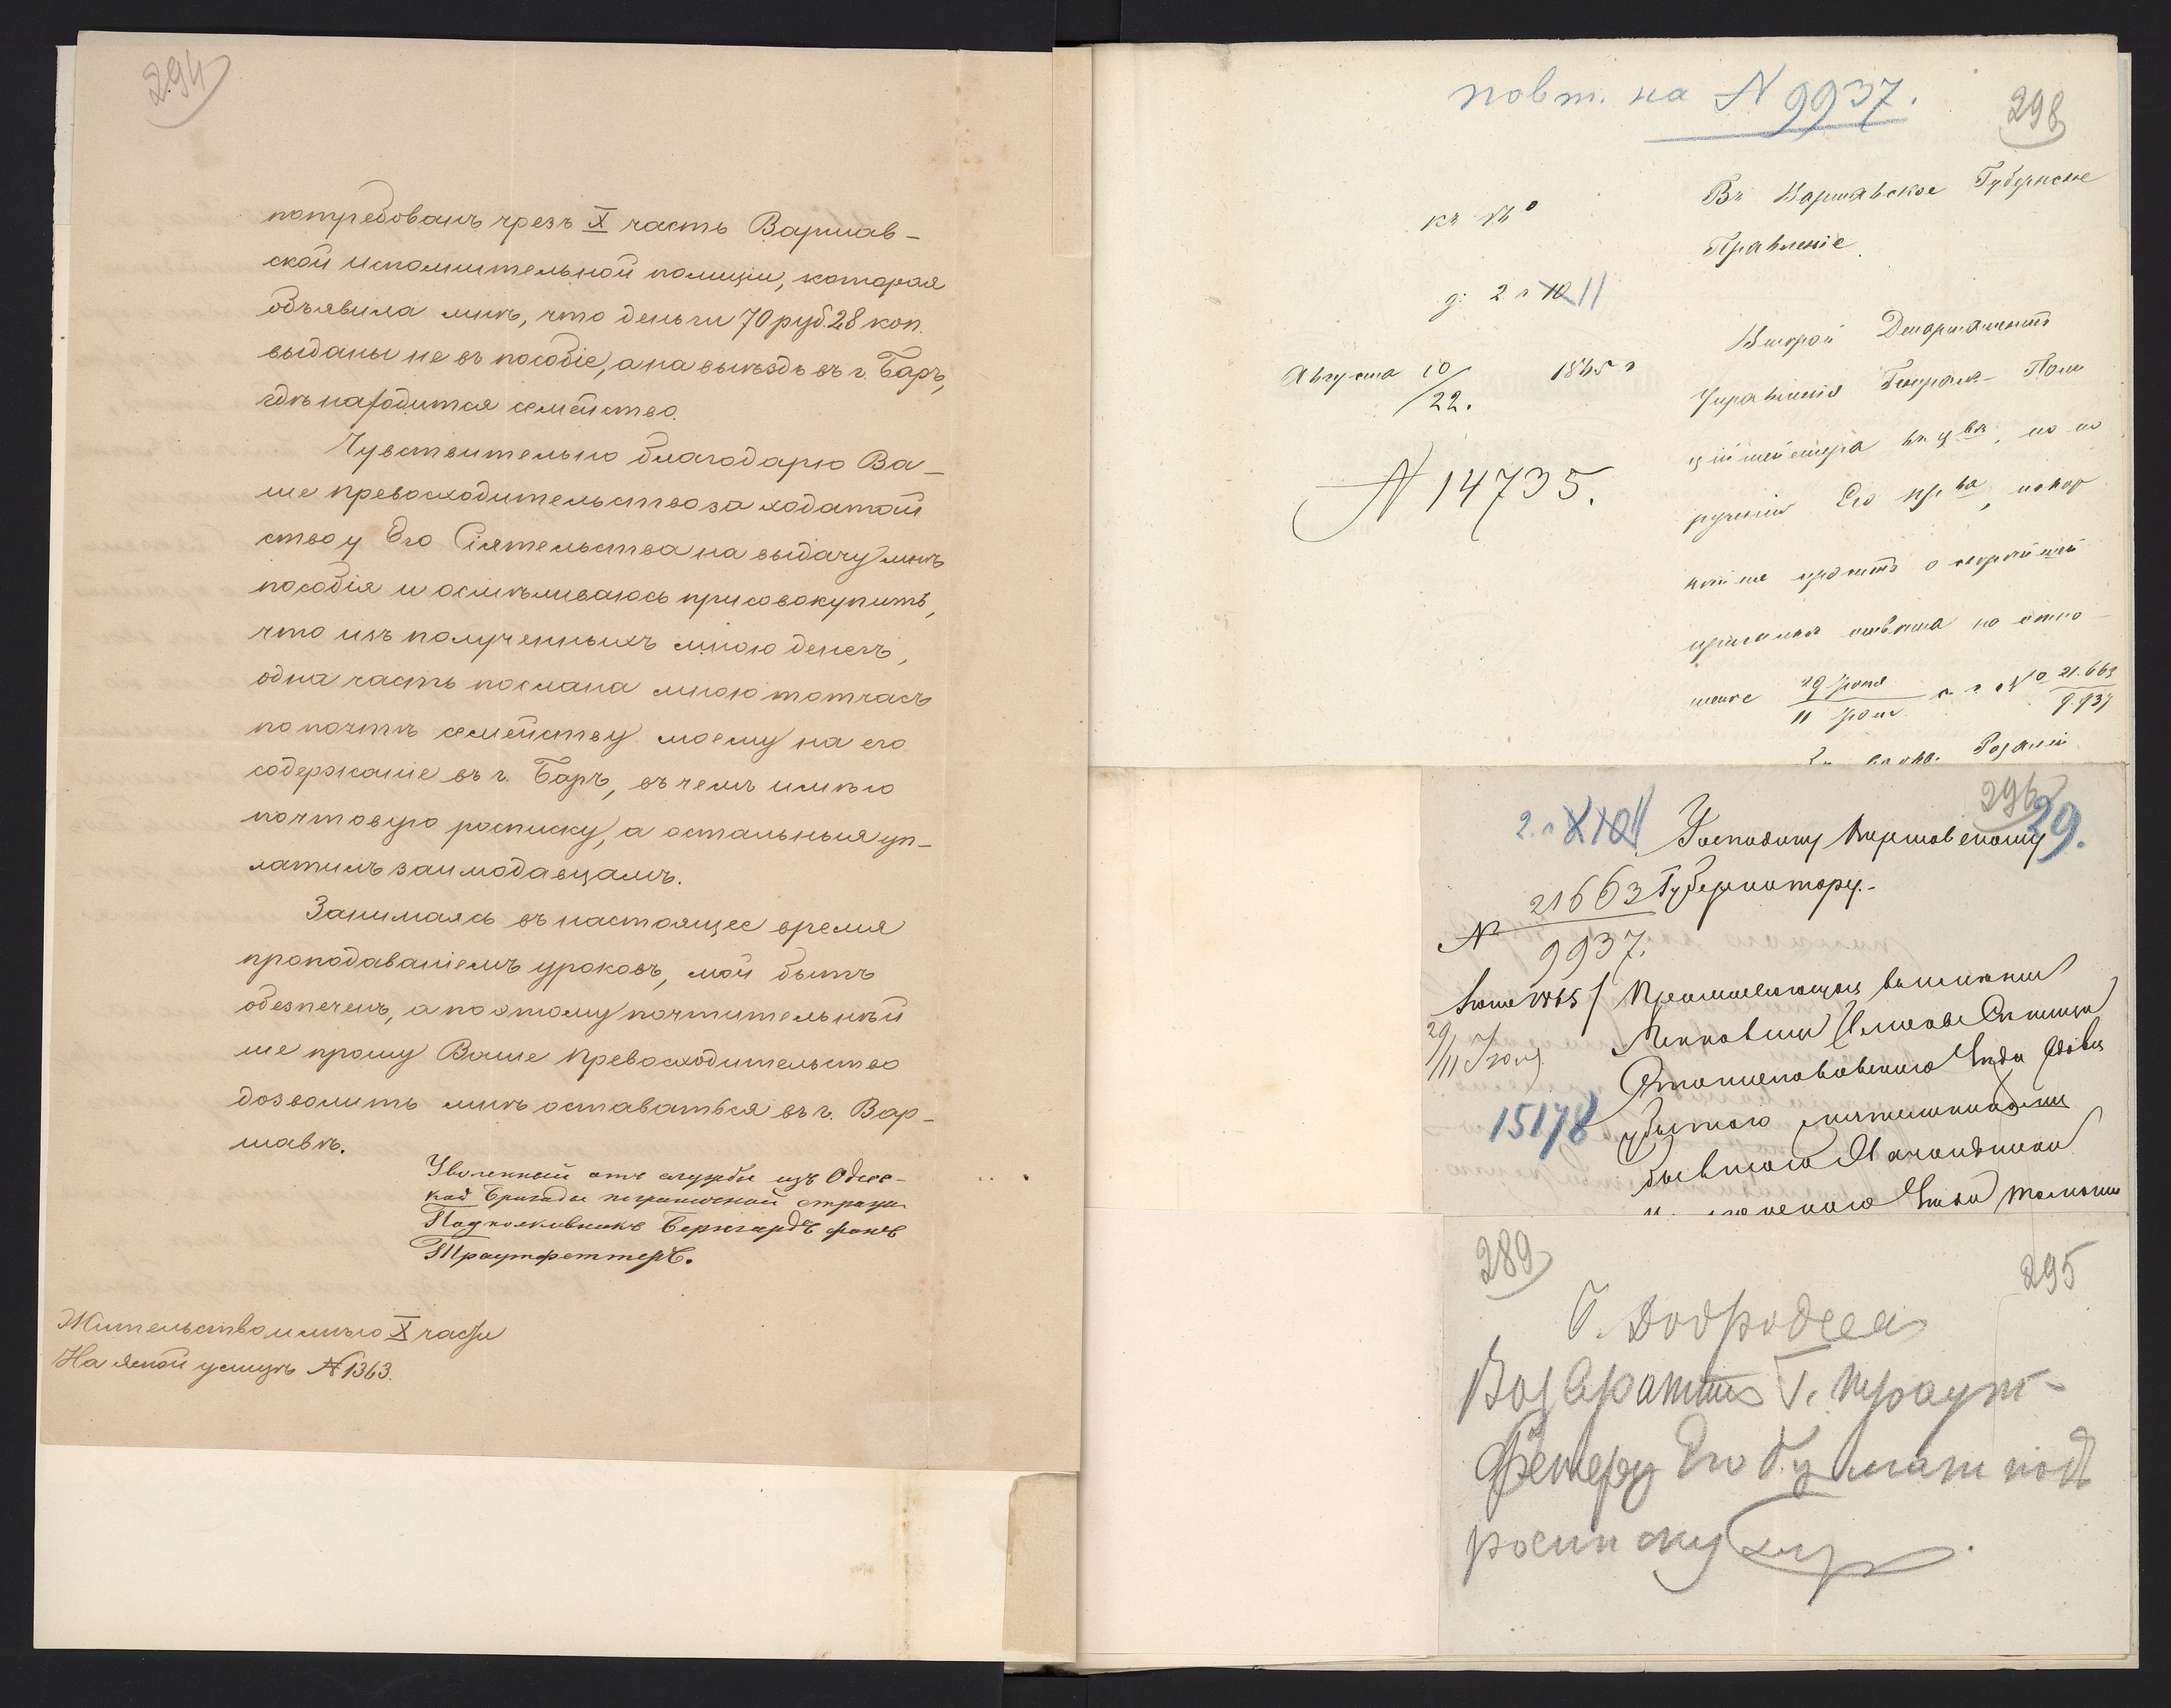 294
потребованъ чрезъ X часть Варшав-
ской исполнительной полиціи, которая
объявила мнѣ, что деньги 70 руб. 28 коп.
выданы не въ пособіе, а на выѣздъ въ г. Баръ,
гдѣ находится семейство.
Чувствительно благодарю Ва-
ше превосходительство за ходатай
ство у Его Сіятельства на выдачу мнѣ
пособія и осмѣливаюсь присовокупить,
что изъ полученныхъ мною денегъ,
одна часть послана мною тотчасъ
по почтѣ семейству моему на его
содержаніе въ г. Баръ, въ чемъ имѣю
почтовую росписку, а остальныя уп-
латилъ заимодавцамъ.
Занимаясь въ настоящее время
преподаваніемъ уроковъ, мой бытъ
обезпеченъ, а поэтому почтительнѣй
ше прошу Ваше Превосходительство
дозволить мнѣ оставаться въ г. Вар-
шавѣ.
Уволенный отъ службы изъ Одес-
кой бригады пограничной стражи
Подполковникъ Бернгардъ фонъ
Траутфеттеръ.
Жительство имѣю X части
На ясной улицѣ N 1363.
повт. на N 9937.
298
Въ Варшавское Губернское
Правленіе.
къ №
д: 2 л 10 11
Августа 10/22. 1865 г
N 14735.
Второй Департаментъ
Управленія Генералъ-Поли
цiймейстера въ Ц вѣ, по по
рученію Его пр. ва, покор
нѣйше проситъ о скорѣйшей
присылкѣ отвѣта по отно-
шенію 29 Іюня / 11 Іюля с. г. № 21.663 / 9.937
296
29.
2. л X 10 11
Господину Варшавскому
Губернатору.-
N 21663 / 9937.
Іюня 1865
29/11 Іюля
15178
Станиславовскаго Уѣзда
убитаго мятежниками
бывшаго
Уѣзда
289
295
Г.
Возвратить Г. Траут-
фетеру Его бумаги подъ
росписку